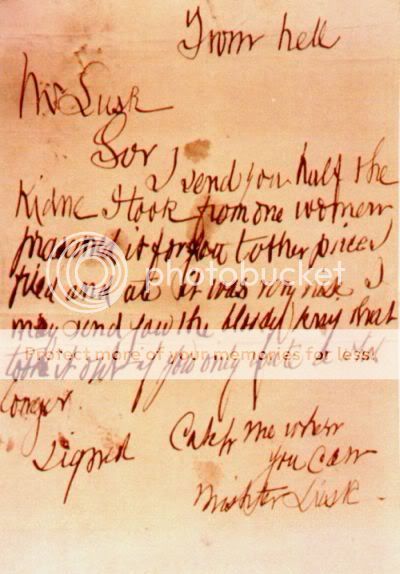 From hell
Mr Lusk
Sor
I send you half the
Kidne I took from one women
prasarved it for you tother piece I
fried and ate it was very nise I
photobucket
may send you the bloody knif that
Protect more of your memories for less!
took it out if you only wate a whil
longer.
signed Catch me when
you can
Mishter Lusk.